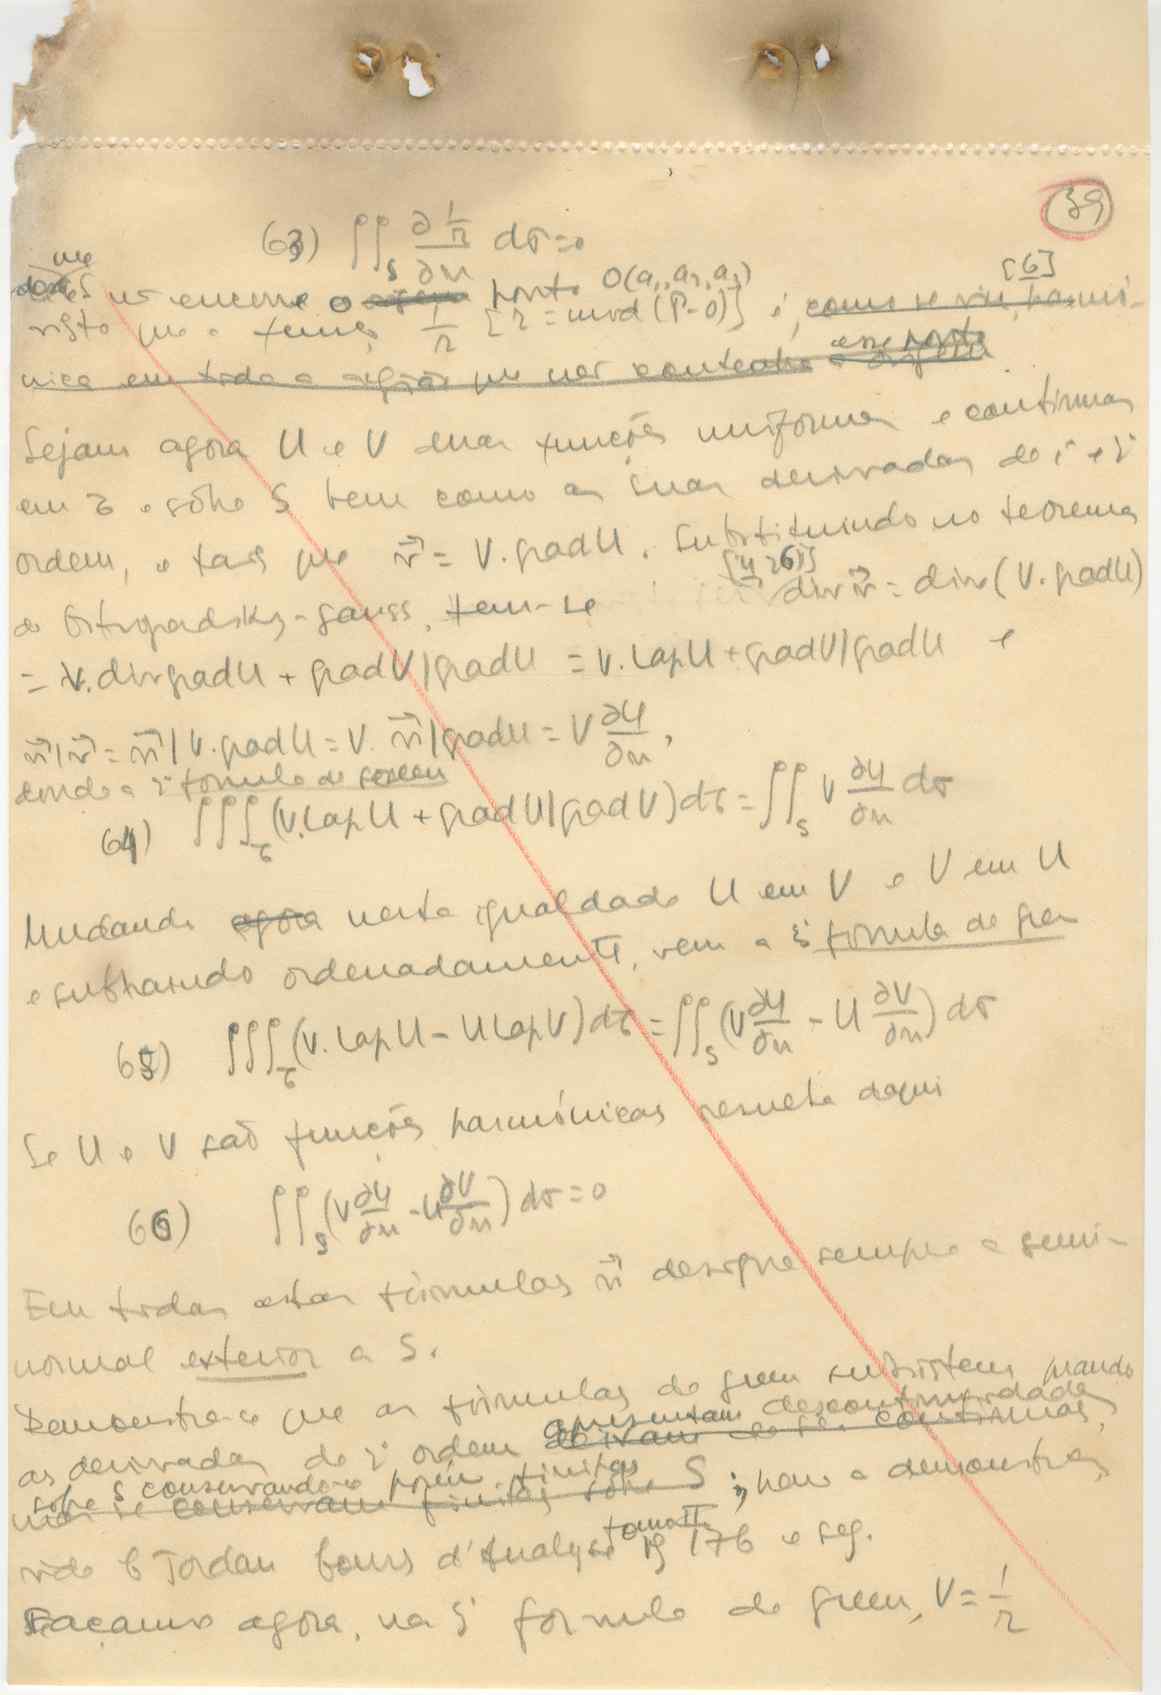 39
(63) ∫∫_S ∂(1/r)/∂n dσ=0
se S não encerra o origem ponto O(a₁, a₂, a₃) [6]
visto que a função 1/r [r = mod (P-O)] é, como se viu, harmó-
nica em toda a região que não contenha a origem esse ponto
Sejam agora U e V duas funções uniformes e continuas
em τ e sôbre S bem como as suas derivadas de 1ª e 2ª
ordem, e tais que v⃗ = V.gradU. Substituindo no teorema
de Ostrogradsky-Gauss, tem-se [4, 26)] div v⃗ = div(V.gradU)
= V.divgradU + gradV|gradU = V.lapU + gradV|gradU e
n⃗|v⃗ = n⃗|V.gradU = V. n⃗|gradU = V ∂U/∂n,
donde a 2ª formula de Green
(64) ∫∫∫_τ (V.lapU + gradU|gradV)dτ = ∫∫_S V ∂U/∂n dσ
Mudando agora nesta igualdade U em V e V em U
e subtraindo ordenadamente, vem a 3ª formula de Green
(65) ∫∫∫_τ (V.lapU - UlapV)dτ = ∫∫_S (V ∂U/∂n - U ∂V/∂n) dσ
Se U e V são funções harmónicas resulta daqui
(66) ∫∫_S (V ∂U/∂n - U ∂V/∂n) dσ = 0
Em todas estas fórmulas n⃗ designa sempre a semi-
normal exterior a S.
Demonstra-se que as fórmulas de Green subsistem quando
as derivadas de 2ª ordem apresentam descontinuidades
sobre S conservando-se porém finitas
mas se conservam finitas sobre S; para a demonstração
vide C Jordan Cours d'Analyse tomo II pg 176 e seg.
Façamos agora, na 3ª formula de Green, V = 1/r